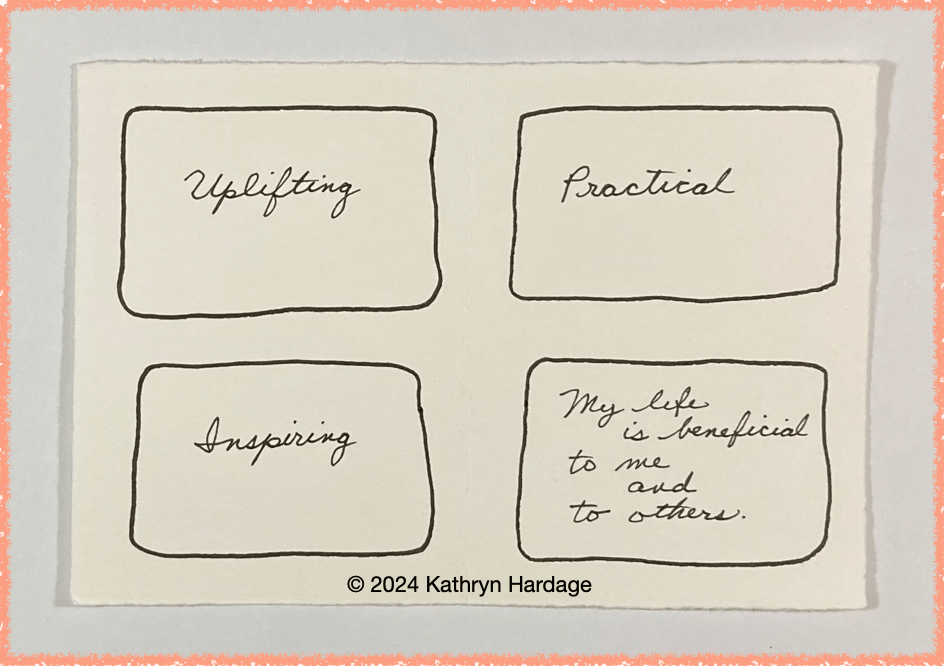 Uplifting
Practical
Inspiring
My life
is beneficial
to me
and
to others.
© 2024 Kathryn Hardage